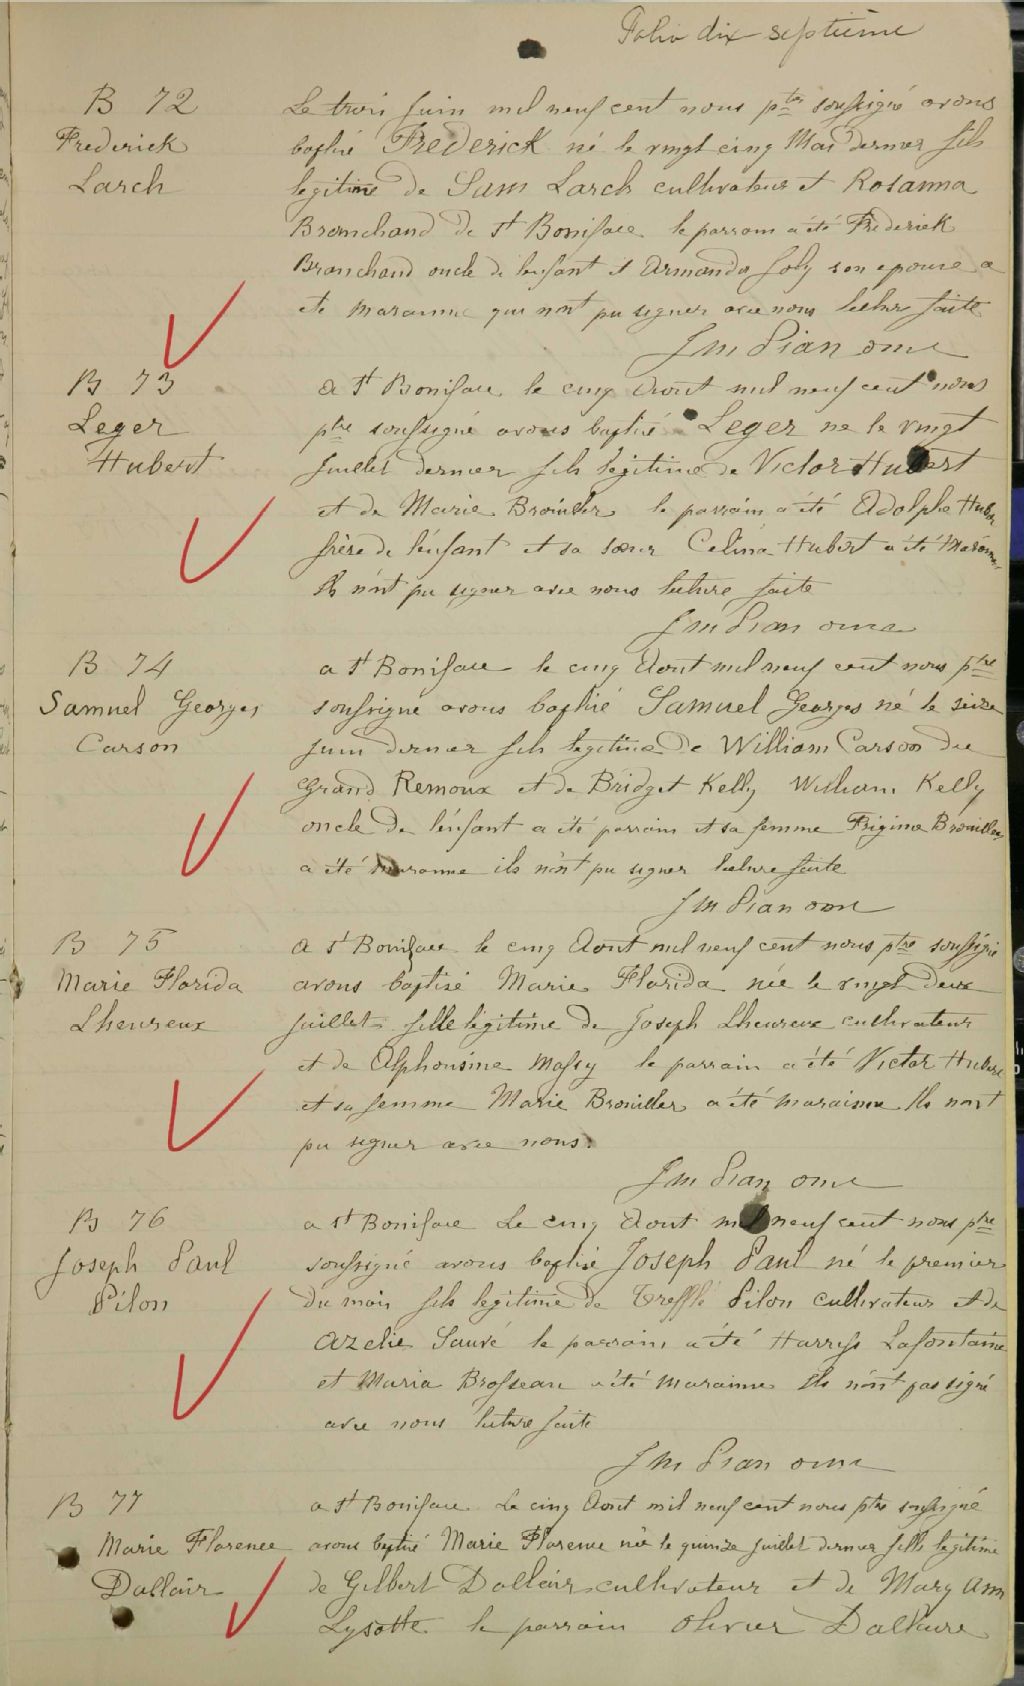 Folio dix-septième
B 72
Frederick
Larch
Le trois juin mil neuf cent nous ptre soussigné avons
baptisé Frederick né le vingt cinq Mai dernier fils
legitime de Sam Larch cultivateur et Rosanna
Branchaud de St Boniface le parrain a été Frederick
Branchaud oncle de l'enfant et Armanda Joly son epouse a
ete maraine qui n'ont pu signer avec nous lecture faite
J M Pian omi
B 73
Leger
Hubert
a St Boniface le cinq Aout mil neuf cent nous
ptre soussigné avons baptisé Leger ne le vingt
Juillet dernier fils legitime de Victor Hubert
et de Marie Brouiller le parrain a été Adolphe Hubert
frère de l'enfant et sa sœur Celina Hubert a été Maraine
Ils n'ont pu signer avec nous lecture faite
J M Pian omi
B 74
Samuel Georges
Carson
a St Boniface le cinq Aout mil neuf cent nous ptre
soussigné avons baptisé Samuel Georges né le seize
juin dernier fils legitime de William Carson du
Grand Remoux et de Bridget Kelly William Kelly
oncle de l'enfant a été parrain et sa femme Brouiller
a été maranne ils n'ont pu signer lecture faite
J M Pian omi
B 75
Marie Florida
Lheureux
a St Boniface le cinq Aout mil neuf cent nous ptre soussigné
avons baptisé Marie Florida née le vingt deux
juillet fille légitime de Joseph Lheureux cultivateur
et de Alphonsine Massy le parrain a été Victor Hubert
et sa femme Marie Brouiller a été maraine Ils n'ont
pu signer avec nous.
J M Pian omi
B 76
Joseph Paul
Pilon
a St Boniface Le cinq Aout mil neuf cent nous ptre
soussigné avons baptisé Joseph Paul né le premier
du mois fils legitime de Treffle Pilon cultivateur et de
Azelie Sauvé le parrain a été Harryss Lafontaine
et Maria Brosseau a été maraine Ils n'ont pas signé
avec nous lecture faite
J M Pian omi
B 77
Marie Florence
Dallair
a St Boniface Le cinq Aout mil neuf cent nous ptre soussigné
avons baptisé Marie Florence née le quinze juillet dernier fille legitime
de Gilbert Dallair cultivateur et de Mary Ann
Lysotte le parrain Olivier Dallaire